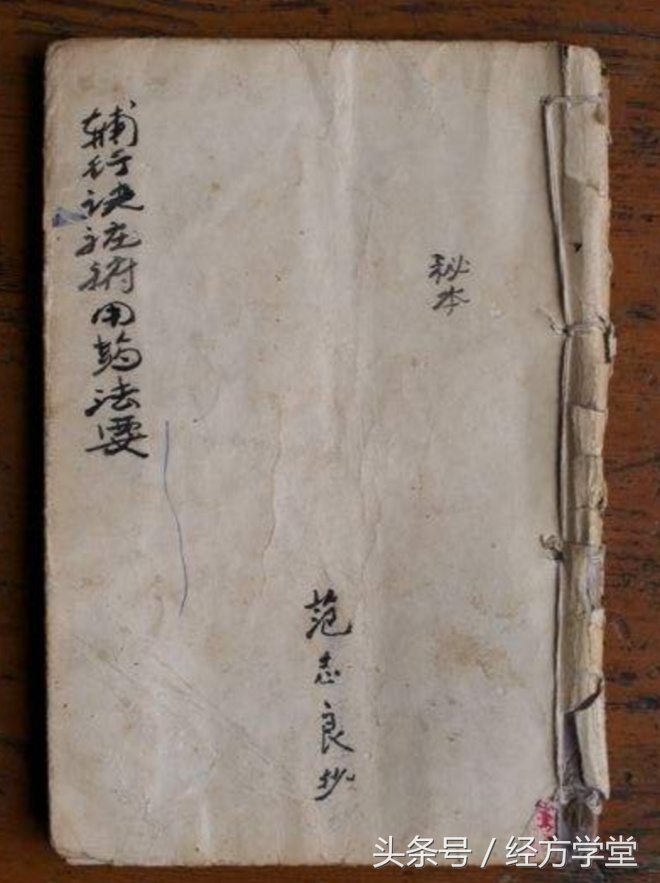 秘本
范志良抄
輔行诀脏腑用药法要
头条号 / 经方学堂